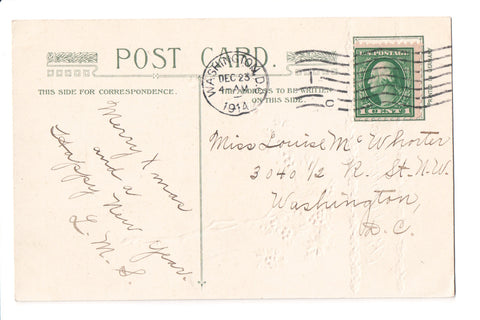 POST CARD.
THIS SIDE FOR CORRESPONDENCE.
ADDRESS TO BE WRITTEN
ON THIS SIDE.
WASHINGTON, D.C.
DEC 23
4 AM
1914
1
C
Merry Xmas
and a
Happy New Year.
L. M. S.
Miss Louise McWhorter
3040 1/2 R. St. N.W.
Washington,
D.C.